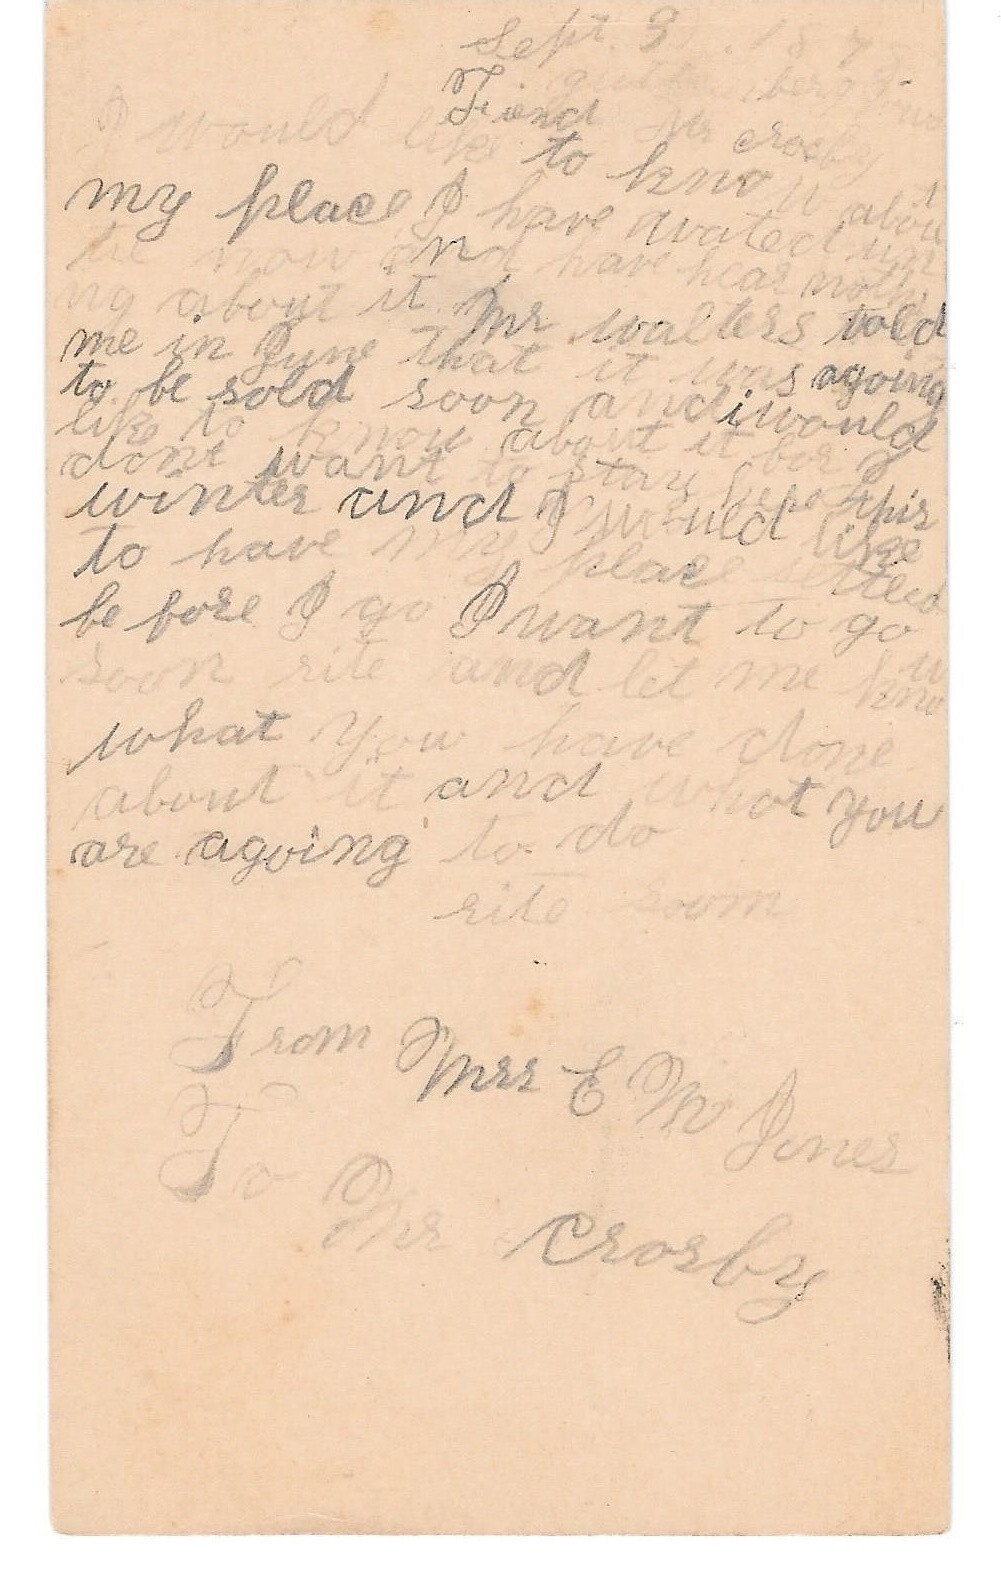 Sept. 9 187
Fiend Mr crosby
I would like to know about
my place I have wated un
te now and have hear nothi
ng about it Mr walters told
me in June that it was agoing
to be sold soon and i would
like to know about it bos I
dont want to stay here this
winter and I would like
to have my place
be fore I go I want to go
soon rite and let me know
what you have done
about it and what you
are agoing to do
rite soom
From Mrs E M Jones
To Mr Crosby